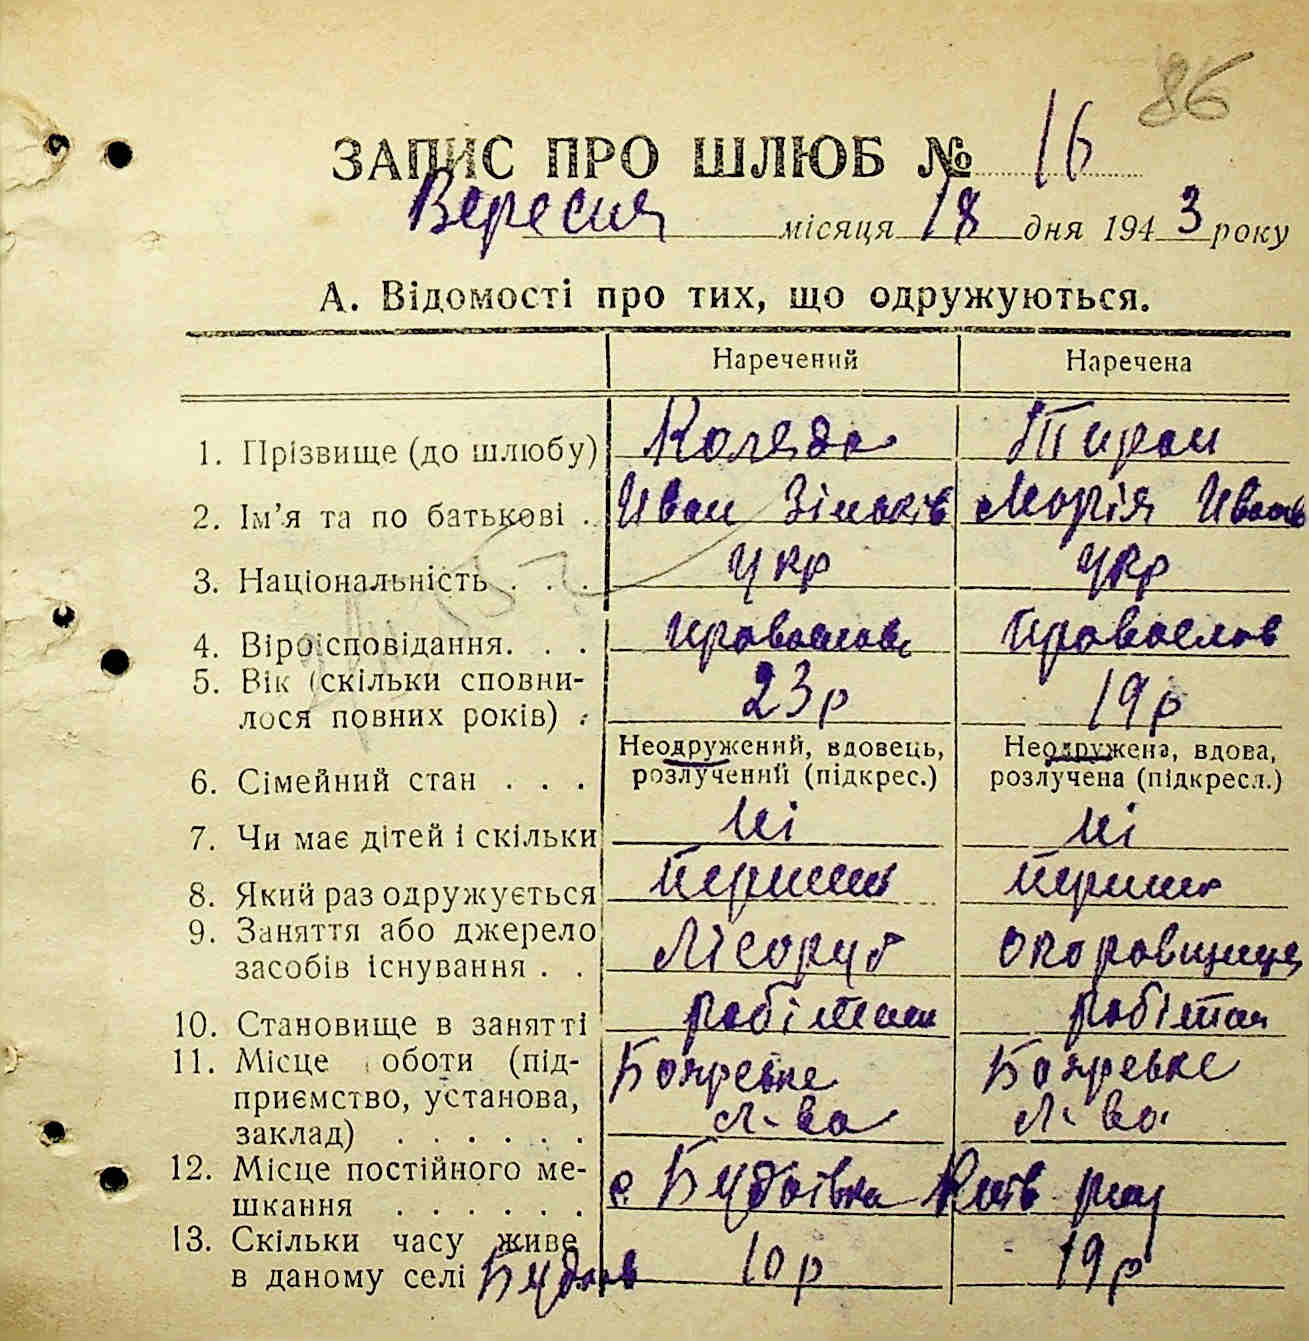 86
ЗАПИС ПРО ШЛЮБ № 16
Вересня місяця 18 дня 1943 року
А. Відомості про тих, що одружуються.
Наречений Наречена
1. Прізвище (до шлюбу) Коляда Тиран
2. Ім'я та по батькові . Иван Марія Иванів
3. Національність . . . укр укр
4. Віроісповідання. . . Православ Православ
5. Вік (скільки сповни-
лося повних років) . 23 р 19 р
Неодружений, вдовець, Неодружена, вдова,
6. Сімейний стан . . . розлучений (підкрес.) розлучена (підкресл.)
7. Чи має дітей і скільки ні ні
8. Який раз одружується перший перший
9. Заняття або джерело
засобів існування . . Лісоруб
10. Становище в занятті робітник робітн
11. Місце роботи (під- Боярське Боярське
приємство, установа, л-во л-во
заклад) . . . . . .
12. Місце постійного ме-
шкання . . . . . . с. Будаївка Київ рай
13. Скільки часу живе
в даному селі Будаїв 10 р 19 р